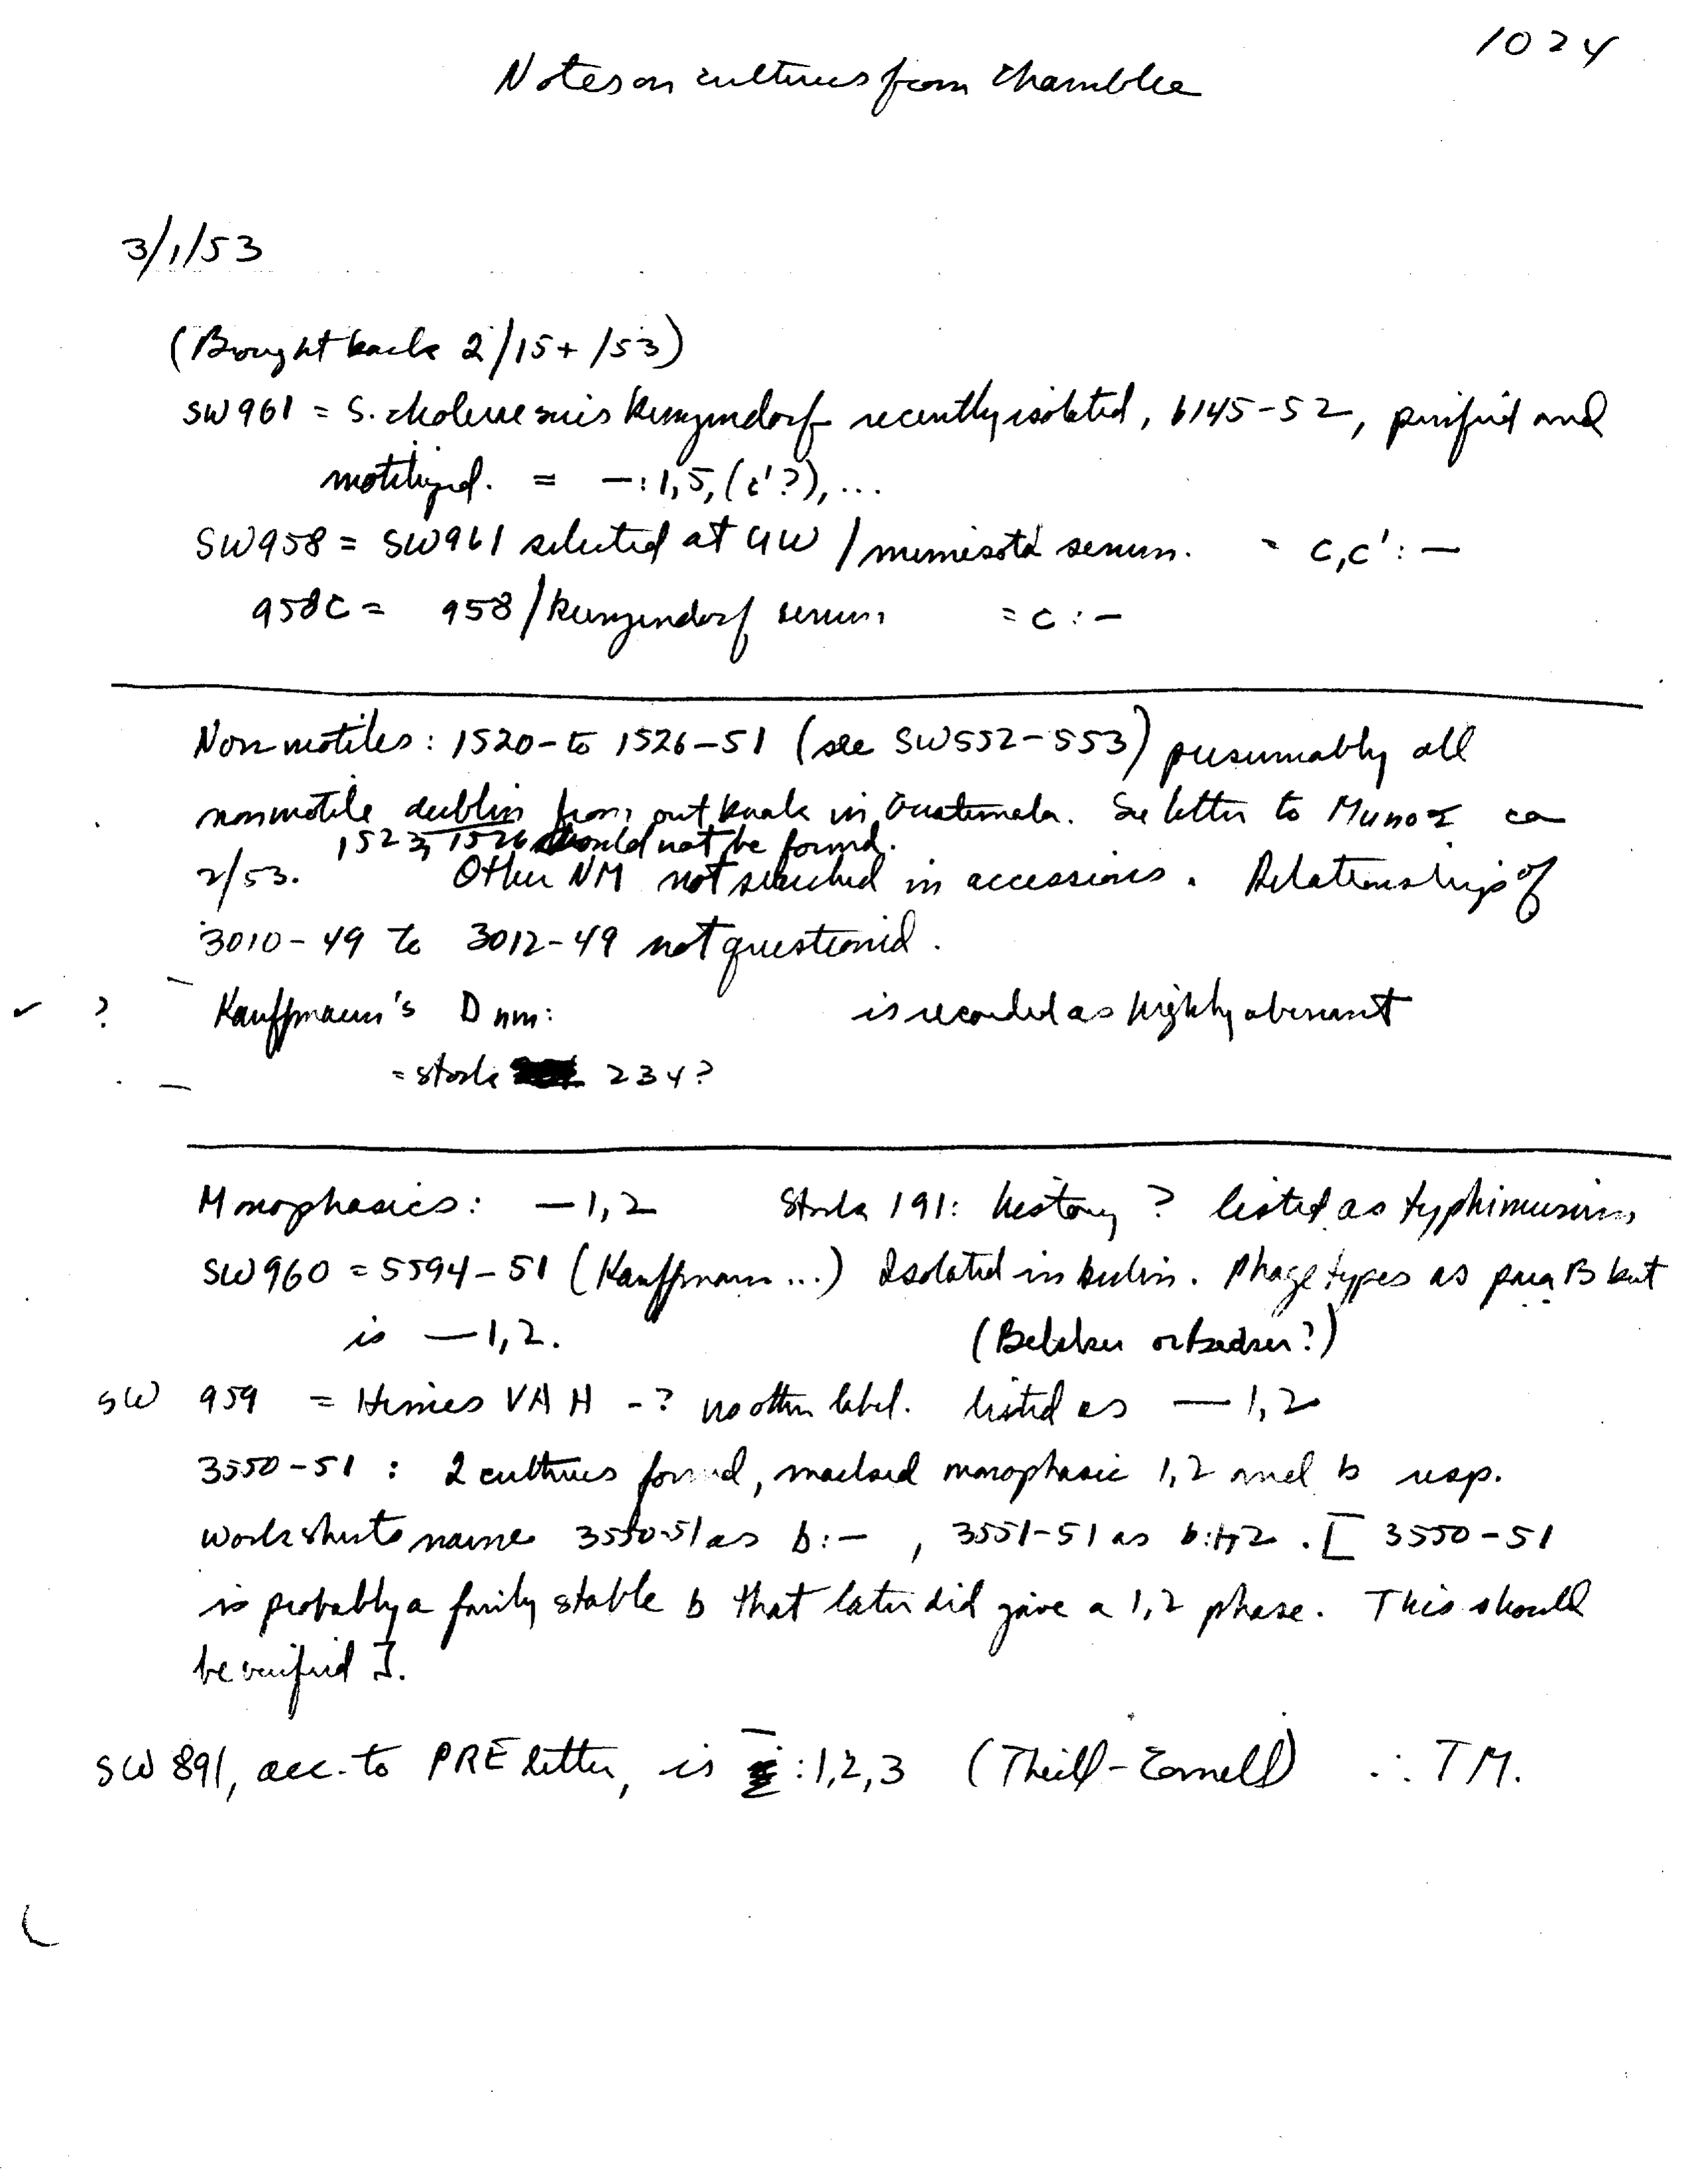 1024
Notes on cultures from Chamblee
3/1/53
(Brought back 2/15+/53)
SW961 = S. cholerae suis Kunzendorf recently isolated, 6145-52, purified and
motilized. = —:1,5,(c'?),...
SW958 = SW961 selected at UW / minnesota serum. = c,c':—
958C = 958/Kunzendorf serum = c:—
Nonmotiles: 1520- to 1526-51 (see SW552-553) presumably all
nonmotile dublin from outbreak in Guatemala. See letter to Munoz ca
1523, 1526 could not be found.
2/53. Other NM not searched in accessions. Relationships of
3010-49 to 3012-49 not questioned.
✓ ? Kauffmann's D nm: is recorded as highly aberrant
= stock 234?
Monophasics: —1,2 Stock 191: history? listed as typhimurium
SW960 = 5594-51 (Kauffmann...) Isolated in Berlin. Phage types as para B but
is —1,2. (Beleker or Bedser?)
SW 959 = Hinies VAH -? no other label. listed as —1,2
3550-51: 2 cultures found, marked monophasic 1,2 and b resp.
Worksheets name 3550-51 as b:—, 3551-51 as b:1,2. [3550-51
is probably a fairly stable b that later did give a 1,2 phase. This should
be verified].
SW 891, acc. to PRE letter, is —:1,2,3 (Theill-Cornell) ∴ TM.